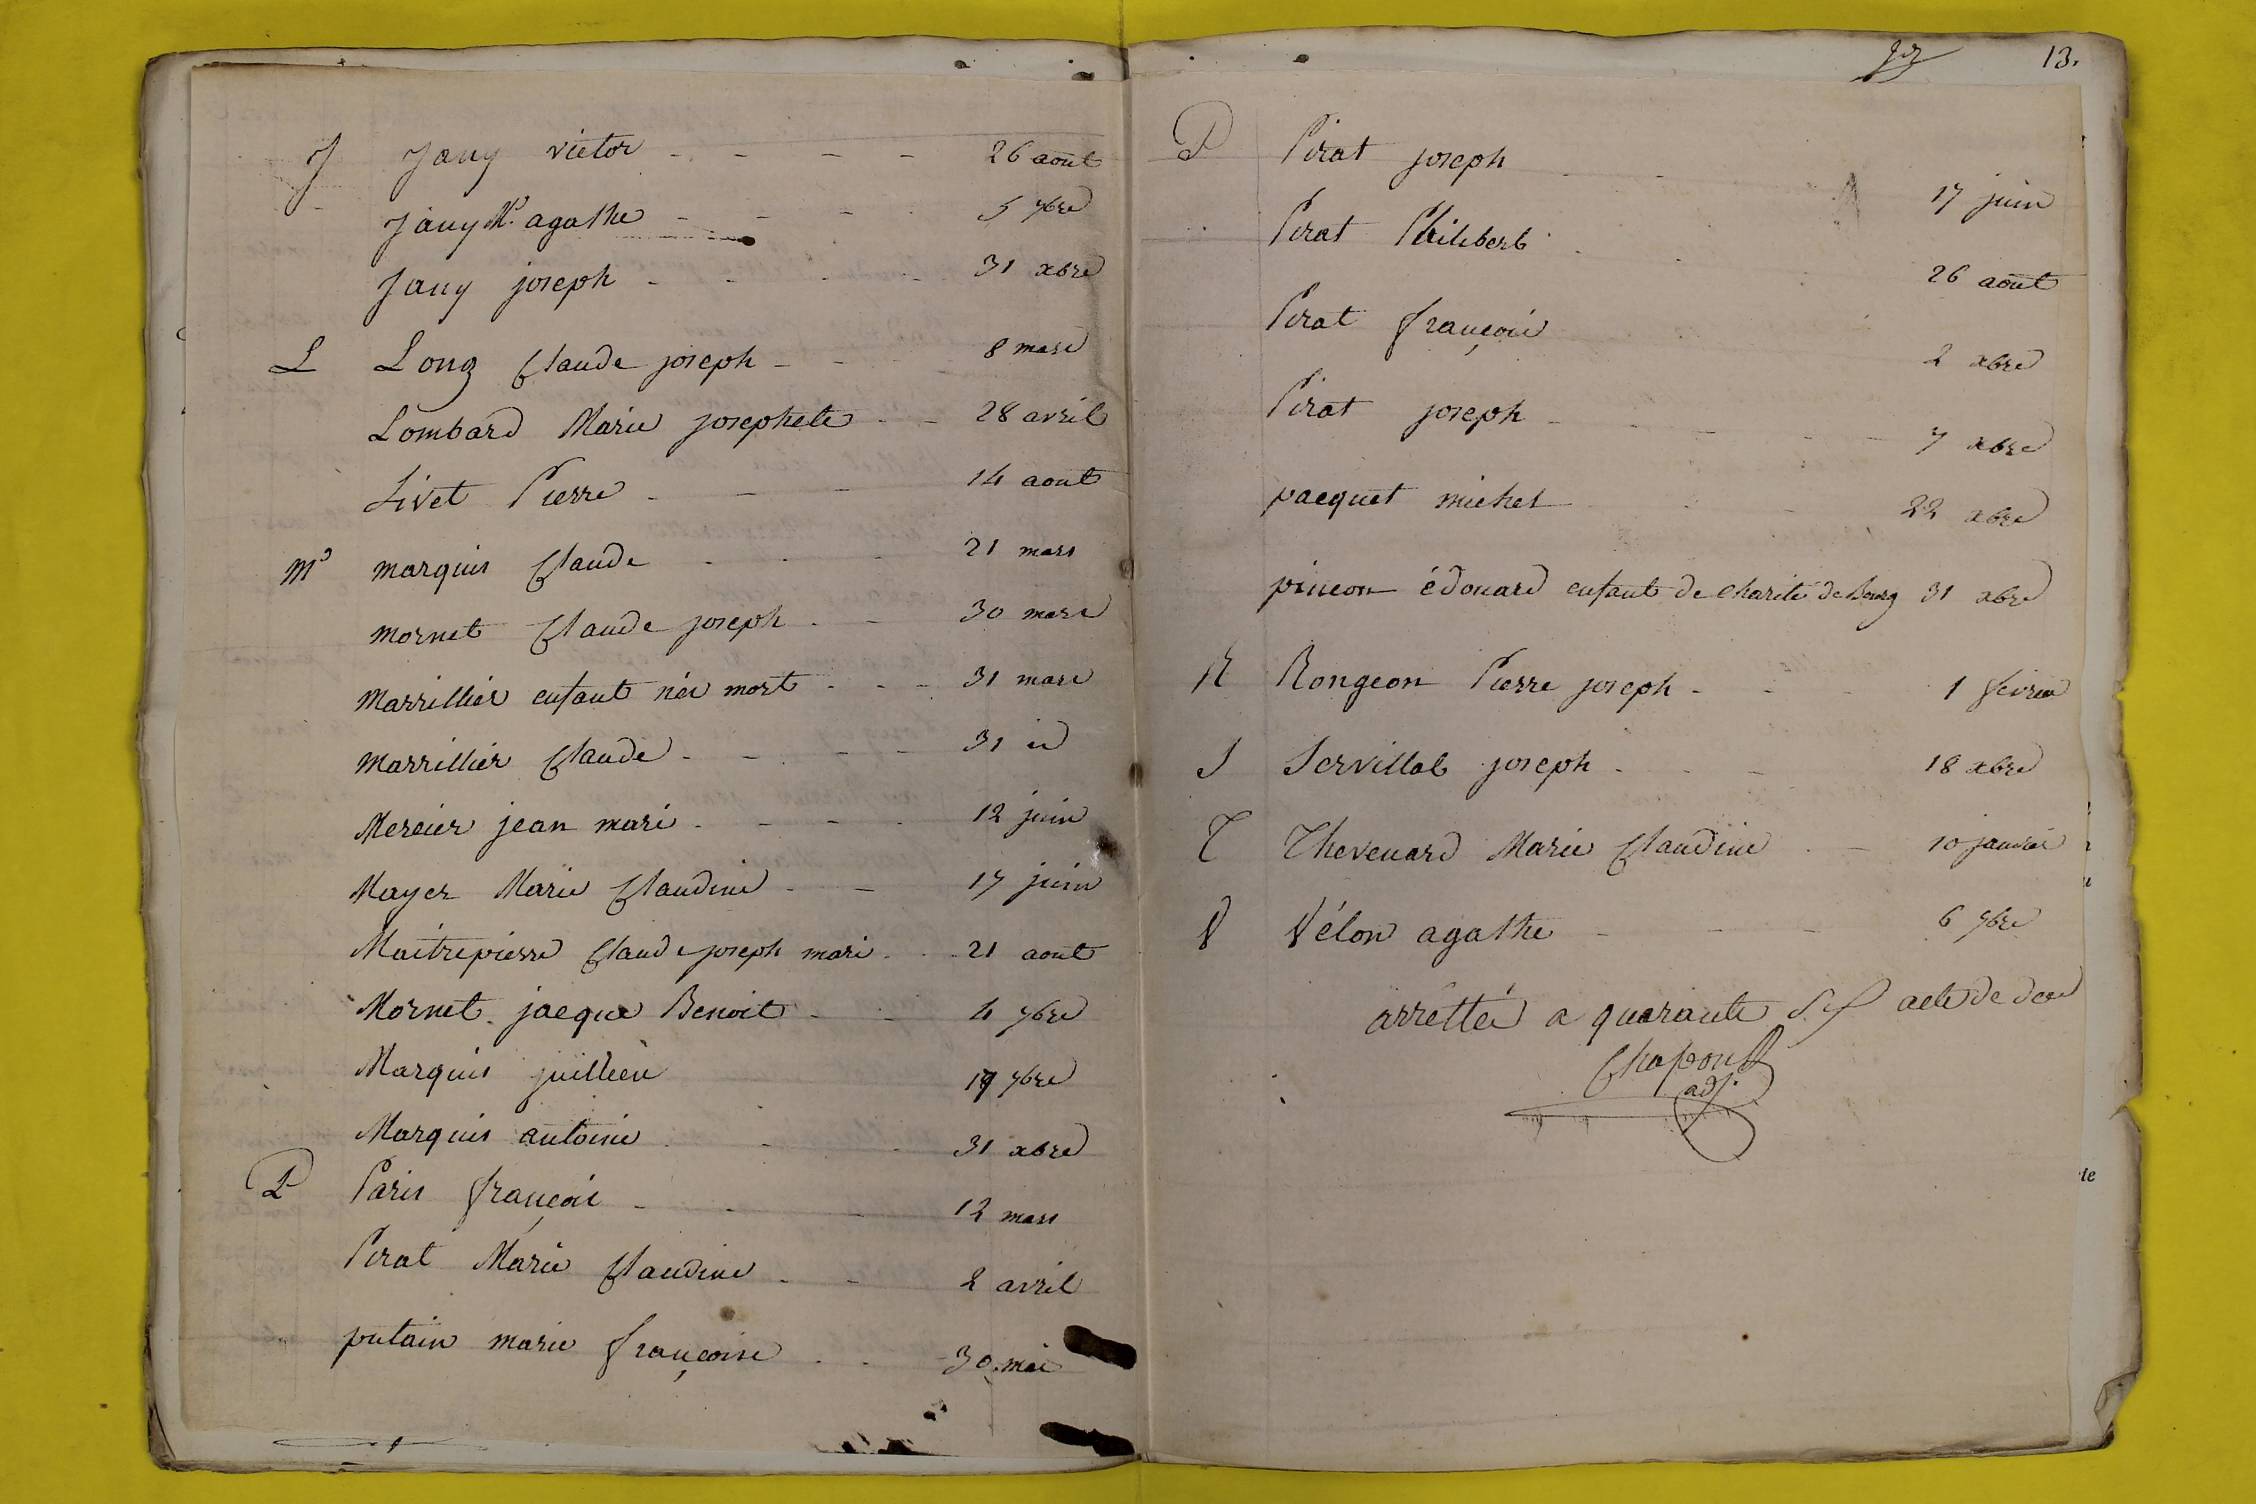 J Jany victor - - - - 26 aout
Jany Me. agathe - - - 5 7bre
Jany joseph - - - - 31 xbre
L Long Claude joseph - - 8 mars
Lombard Marie josephete - - 28 avril
Livet Pierre - - - 14 aout
M marquis Claude - - - 21 mars
mornet Claude joseph - - 30 mars
Marrillier enfant née mort - - - 31 mars
Marrillier Claude - - - - 31 id
Mercier jean mari - - - - 12 juin
Mayer Marie Claudine - - 17 juin
Maitrepierre Claude joseph mari - - 21 aout
Mornet jacque Benoit - - 4 7bre
Marquis juillien 19 7bre
Marquis antoine - - 31 xbre
P Paris françois - - - 12 mars
Pirat Marie Claudine - - 2 avril
putain marie françoise - - 30 mai
13.
P Pirat joseph - - 17 juin
Pirat Philibert - - 26 août
Pirat françois 2 xbre
Pirat joseph - - - - 7 xbre
pacquet michel - - 22 xbre
pincon édouard enfant de charité de Bourg 31 xbre
R Rongeon Pierre joseph - - - 1 fevrier
S Servillat joseph - - - 18 xbre
T Thevenard Marie Claudine - - 10 janvier
V Vélon agathe - - - 6 7bre
arrêtté a quarante acte de
adj.